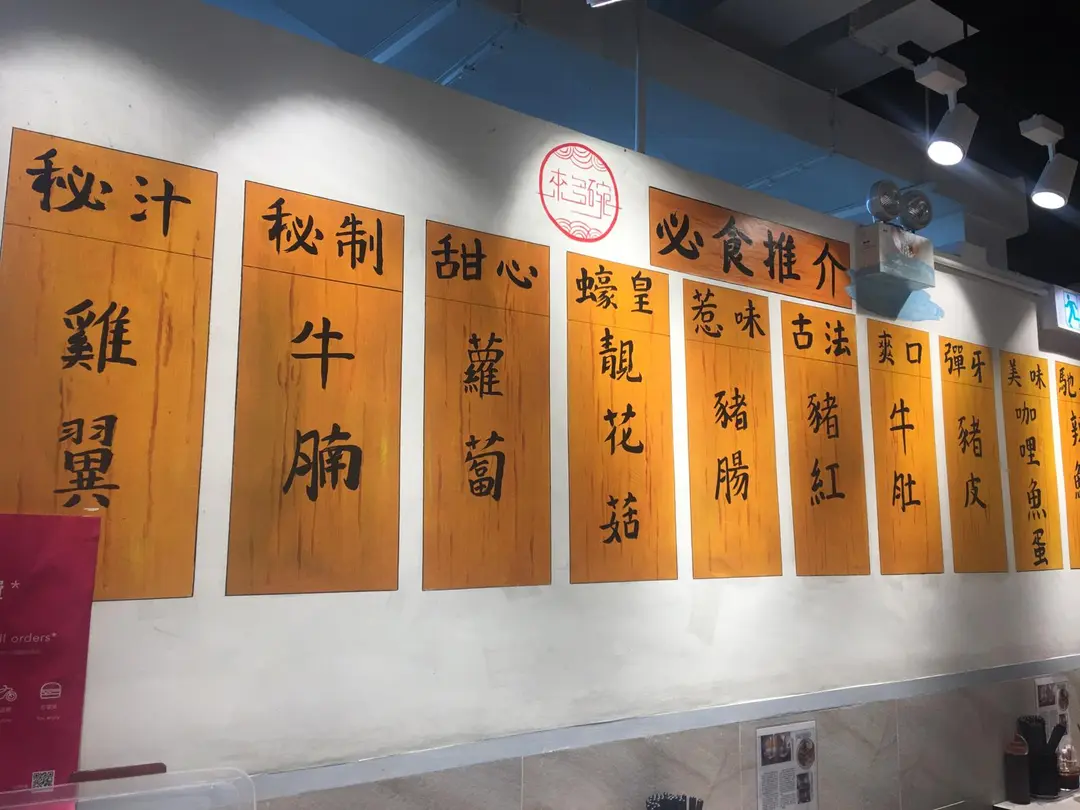 來多碗
必食推介
秘汁
雞翼
秘制
牛腩
甜心
蘿蔔
蠔皇
靚花菇
惹味
豬腸
古法
豬紅
爽口
牛肚
彈牙
豬皮
美味
咖哩魚蛋
ll orders*